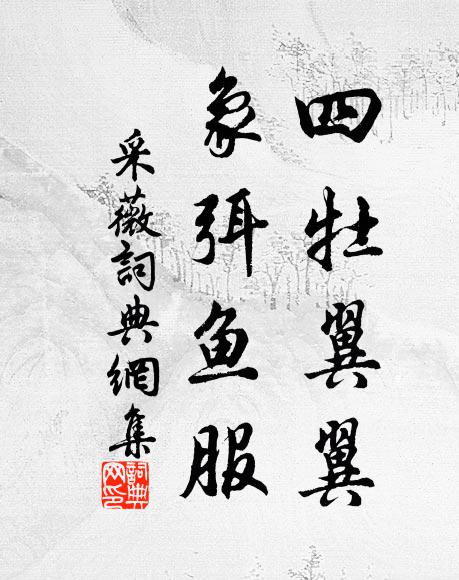 四牡翼翼
象弭魚服
采薇詞典網集
詞典
网印